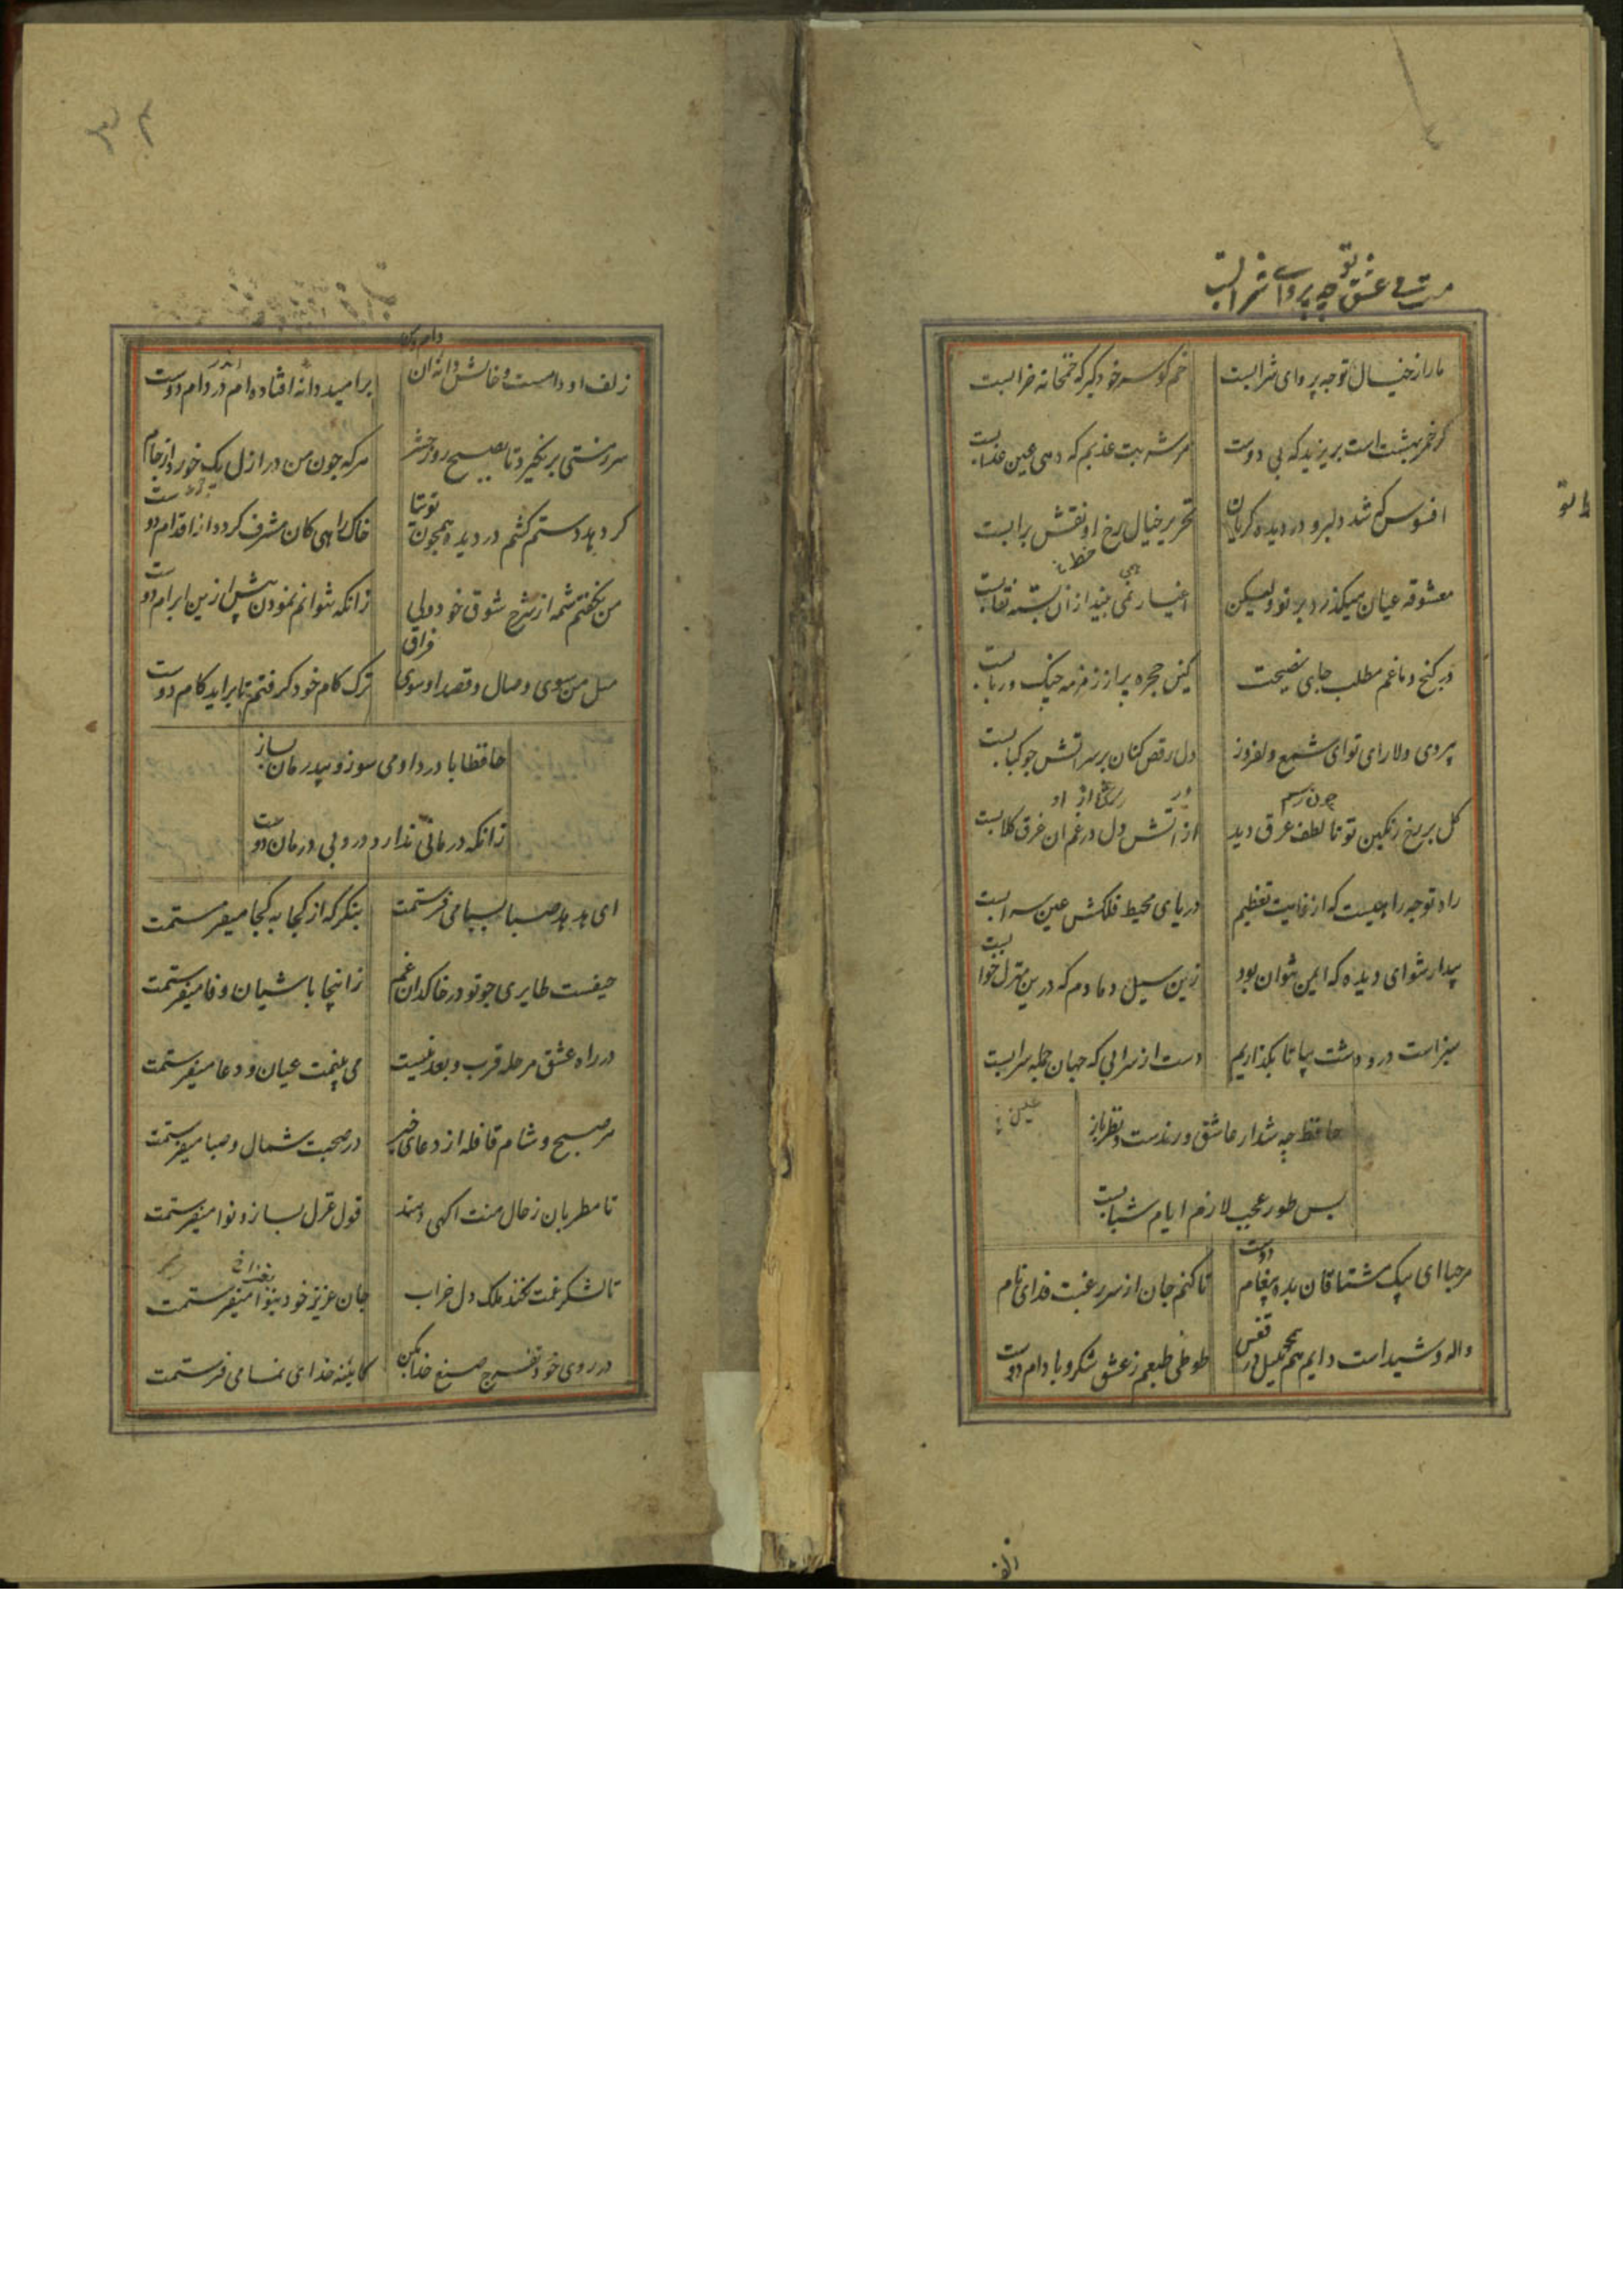 عشق تو چه پروای شرابست
ما را ز خیال تو چه پروای شرابست خم کو سر خود کیر که خمخانه خرابست
کر خمر بهشت است بریزید که بی دوست هر شربت عذبم که دهی عین عذابست
افسوس که شد دلبر و در دیده کریان تحریر خیال رخ او نقش برابست
معشوقه عیان میکذرد بر تو ولیکن اغیار نمی بیند ازان بسته نقابست
در کنج دماغم مطلب جای نصیحت کین حجره پر از زمزمه چنک و ربابست
بی روی دلارای تو ای شمع دلفروز دل رقص کنان بر سر اتش جو کبابست
کل بر رخ رنکین تو تا لطف عرق دید از اتش دل در غم ان غرق کلابست
راه تو چه راهیست که از غایت تعظیم دریای محیط فلکش عین سرابست
بیدار شو ای دیده که ایمن نتوان بود زین سیل دمادم که درین منزل خوابست
سبز است در و دشت بیا تا نکذاریم دست از سرابی که جهان جمله سرابست
حافظ چه شد ار عاشق و رندست و نظرباز
بس طور عجب لازم ایام شبابست
مرحبا ای پیک مشتاقان بده پیغام دوست تا کنم جان از سر رغبت فدای نام
واله و شیداست دایم همچو بلبل در قفس طوطی طبعم ز عشق شکر و بادام دوست
زلف او دامست و خالش دانه ان بر امید دانه افتاده ام در دام دوست
سر ز مستی بر نکیرد تا بصبح روز حشر هر که جون من در ازل یک جرعه خورد از جام
کر دهد دستم کشم در دیده همچون توتیا خاک راهی کان مشرف کردد از اقدام دوست
من بکفتم شمه از شرح شوق خود ولی زانکه نتوانم نمودن بیش ازین ابرام دوست
میل من سوی وصال و قصد او سوی فراق ترک کام خود کرفتم تا براید کام دوست
حافظا با درد او می سوز و بیدرمان بساز
زانکه درمانی ندارد درد بی درمان دوست
ای هدهد صبا بسبا می فرستمت بنکر که از کجا به کجا میفرستمت
حیفست طایری جو تو در خاکدان غم زانجا باشیان وفا میفرستمت
در راه عشق مرحله قرب و بعد نیست می بینمت عیان و دعا میفرستمت
هر صبح و شام قافله از دعای خیر در صحبت شمال و صبا میفرستمت
تا مطربان ز حال منت اکهی دهند قول و غزل بساز و نوا میفرستمت
تا لشکر غمت نکند ملک دل خراب جان عزیز خود بنوا میفرستمت
در روی خود تفرج صنع خدا بکن کایینه خدای نما می فرستمت